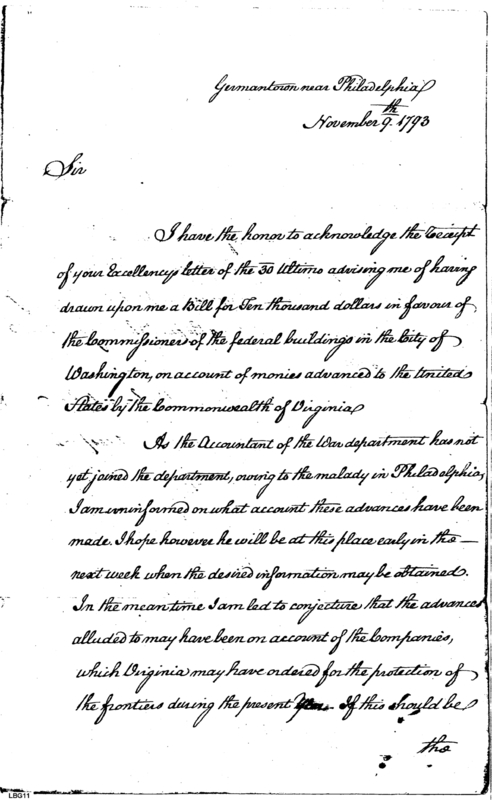 Germantown near Philadelphia
November 9th 1793
Sir
I have the honor to acknowledge the Receipt
of your Excellencys letter of the 30 Ultimo advising me of having
drawn upon me a Bill for Ten thousand dollars in favour of
the Commissioners of the federal buildings in the City of
Washington, on account of monies advanced to the United
States by the Commonwealth of Virginia
As the Accountant of the War department has not
yet joined the department, owing to the malady in Philadelphia,
I am uninformed on what account these advances have been
made. I hope however he will be at this place early in the —
next week when the desired information may be obtained.
In the mean time I am led to conjecture that the advances
alluded to may have been on account of the Companies,
which Virginia may have ordered for the protection of
the frontiers during the present Year - If this should be
the
LBG11